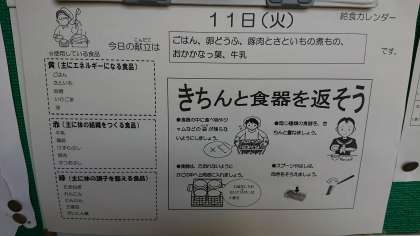 11日(火)
給食カレンダー
こんだて
今日の献立は
ごはん、卵どうふ、豚肉とさといもの煮もの、
おかかなっ葉、牛乳
※使用している食品
黄(主にエネルギーになる食品)
ごはん
さといも
砂糖
いりごま
油
赤(主に体の組織をつくる食品)
牛乳
豚肉
かつおぶし
緑(主に体の調子を整える食品)
たまねぎ
れんこん
にんじん
きちんと食器を返そう
●食器の中に食べ物やジ
ャムなどの
が残らな
いようにしましょう。
●同じ種類の食器を、き
ちんと重ねましょう。
●食器は、たおれないように
かごの中へ上向きに入れましょう。
●スプーンやはしは、
向きをそろえましょう。